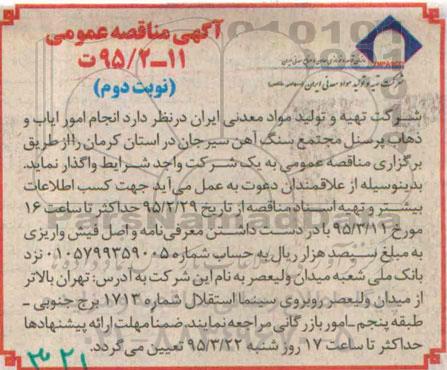 آگهی مناقصه عمومی
۱۱–۹۵/۲ت
(نوبت دوم)
IMPASCO
شرکت تهیه و تولید مواد معدنی ایران
شرکت تهیه و تولید مواد معدنی ایران درنظر دارد انجام امور ایاب و
ذهاب پرسنل مجتمع سنگ آهن سیرجان در استان کرمان را از طریق
برگزاری مناقصه عمومی به یک شرکت واجد شرایط واگذار نماید.
بدینوسیله از علاقمندان دعوت به عمل می‌آید جهت کسب اطلاعات
بیشتر و تهیه اسناد مناقصه از تاریخ ۹۵/۲/۲۹ حداکثر تا ساعت ۱۶
مورخ ۹۵/۳/۱۱ با در دست داشتن معرفی‌نامه و اصل فیش واریزی
به مبلغ سیصد هزار ریال به حساب شماره ۰۱۰۵۷۹۹۳۵۹۰۰۵ نزد
بانک ملی شعبه میدان ولیعصر به نام این شرکت به آدرس: تهران بالاتر
از میدان ولیعصر روبروی سینما استقلال شماره ۱۷۱۳ برج جنوبی -
طبقه پنجم - امور بازرگانی مراجعه نمایند. ضمنا مهلت ارائه پیشنهادها
حداکثر تا ساعت ۱۷ روز شنبه ۹۵/۳/۲۲ تعیین می‌گردد.
۳۲۱